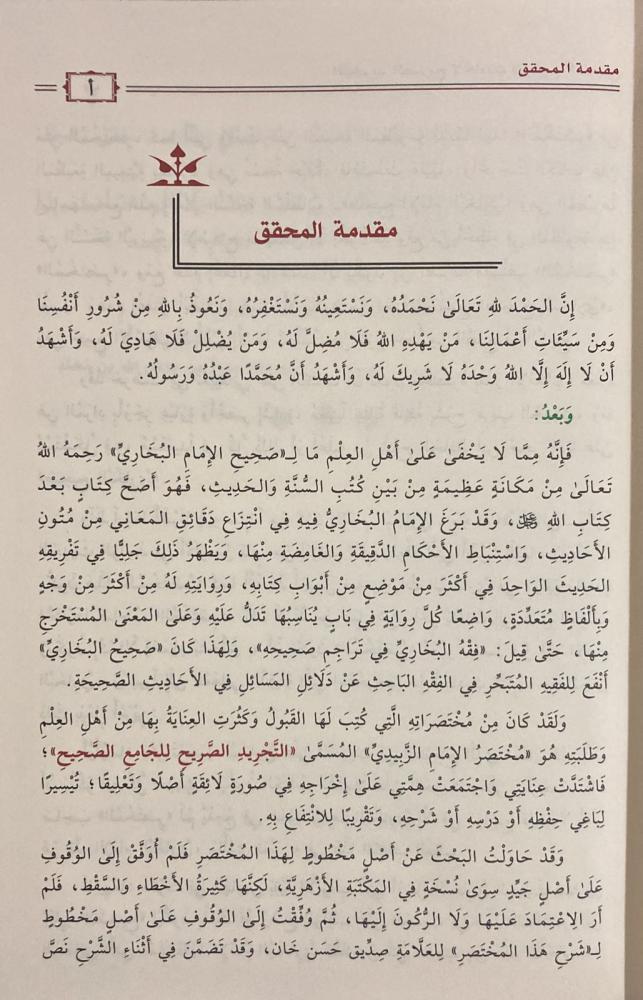 مقدمة المحقق
أ
مقدمة المحقق
إِنَّ الحَمْدَ لله تَعَالَىٰ نَحْمَدُهُ، وَنَسْتَعِينُهُ وَنَسْتَغْفِرُهُ، وَنَعُوذُ بِاللهِ مِنْ شُرُورِ أَنْفُسِنَا
وَمِنْ سَيِّئَاتِ أَعْمَالِنَا، مَنْ يَهْدِهِ اللهُ فَلَا مُضِلَّ لَهُ، وَمَنْ يُضْلِلْ فَلَا هَادِيَ لَهُ، وَأَشْهَدُ
أَنْ لَا إِلَهَ إِلَّا اللهُ وَحْدَهُ لَا شَرِيكَ لَهُ، وَأَشْهَدُ أَنَّ مُحَمَّدًا عَبْدُهُ وَرَسُولُهُ.
وَبَعْدُ:
فَإِنَّهُ مِمَّا لَا يَخْفَىٰ عَلَىٰ أَهْلِ العِلْمِ مَا لِـ«صَحِيحِ الإِمَامِ البُخَارِيِّ» رَحِمَهُ اللهُ
تَعَالَىٰ مِنْ مَكَانَةٍ عَظِيمَةٍ مِنْ بَيْنِ كُتُبِ السُّنَّةِ وَالحَدِيثِ، فَهُوَ أَصَحُّ كِتَابٍ بَعْدَ
كِتَابِ اللهِ، وَقَدْ بَرَعَ الإِمَامُ البُخَارِيُّ فِيهِ فِي انْتِزَاعِ دَقَائِقِ المَعَانِي مِنْ مُتُونِ
الأَحَادِيثِ، وَاسْتِنْبَاطِ الأَحْكَامِ الدَّقِيقَةِ وَالغَامِضَةِ مِنْهَا، وَيَظْهَرُ ذَلِكَ جَلِيًّا فِي تَفْرِيقِهِ
الحَدِيثَ الوَاحِدَ فِي أَكْثَرَ مِنْ مَوْضِعٍ مِنْ أَبْوَابِ كِتَابِهِ، وَرِوَايَتِهِ لَهُ مِنْ أَكْثَرَ مِنْ وَجْهٍ
وَبِأَلْفَاظٍ مُتَعَدِّدَةٍ، وَاضِعًا كُلَّ رِوَايَةٍ فِي بَابٍ يُنَاسِبُهَا تَدَلُّ عَلَيْهِ وَعَلَىٰ المَعْنَىٰ المُسْتَخْرَجِ
مِنْهَا، حَتَّىٰ قِيلَ: «فِقْهُ البُخَارِيِّ فِي تَرَاجِمِ صَحِيحِهِ»، وَلِهَذَا كَانَ «صَحِيحُ البُخَارِيِّ»
أَنْفَعَ لِلفَقِيهِ المُتَبَحِّرِ فِي الفِقْهِ البَاحِثِ عَنْ دَلَائِلِ المَسَائِلِ فِي الأَحَادِيثِ الصَّحِيحَةِ.
وَلَقَدْ كَانَ مِنْ مُخْتَصَرَاتِهِ الَّتِي كُتِبَ لَهَا القَبُولُ وَكَثُرَتِ العِنَايَةُ بِهَا مِنْ أَهْلِ العِلْمِ
وَطَلَبَتِهِ هُوَ «مُخْتَصَرُ الإِمَامِ الزَّبِيدِيِّ» المُسَمَّىٰ «التَّجْرِيدِ الصَّرِيحِ لِلجَامِعِ الصَّحِيحِ»؛
فَاشْتَدَّتْ عِنَايَتِي وَاجْتَمَعَتْ هِمَّتِي عَلَىٰ إِخْرَاجِهِ فِي صُورَةٍ لَائِقَةٍ أَصْلًا وَتَعْلِيقًا؛ تُيْسِيرًا
لِبَاغِي حِفْظِهِ أَوْ دَرْسِهِ أَوْ شَرْحِهِ، وَتَقْرِيبًا لِلانْتِفَاعِ بِهِ.
وَقَدْ حَاوَلْتُ البَحْثَ عَنْ أَصْلٍ مَخْطُوطٍ لِهَذَا المُخْتَصَرِ فَلَمْ أُوَفَّقْ إِلَىٰ الوُقُوفِ
عَلَىٰ أَصْلٍ جَيِّدٍ سِوَىٰ نُسْخَةٍ فِي المَكْتَبَةِ الأَزْهَرِيَّةِ، لَكِنَّهَا كَثِيرَةُ الأَخْطَاءِ وَالسَّقْطِ، فَلَمْ
أَرَ الِاعْتِمَادَ عَلَيْهَا وَلَا الرُّكُونَ إِلَيْهَا، ثُمَّ وُفِّقْتُ إِلَىٰ الوُقُوفِ عَلَىٰ أَصْلٍ مَخْطُوطٍ
لِـ«شَرْحِ هَذَا المُخْتَصَرِ» لِلعَلَّامَةِ صِدِّيق حَسَن خَان، وَقَدْ تَضَمَّنَ فِي أَثْنَاءِ الشَّرْحِ نَصَّ